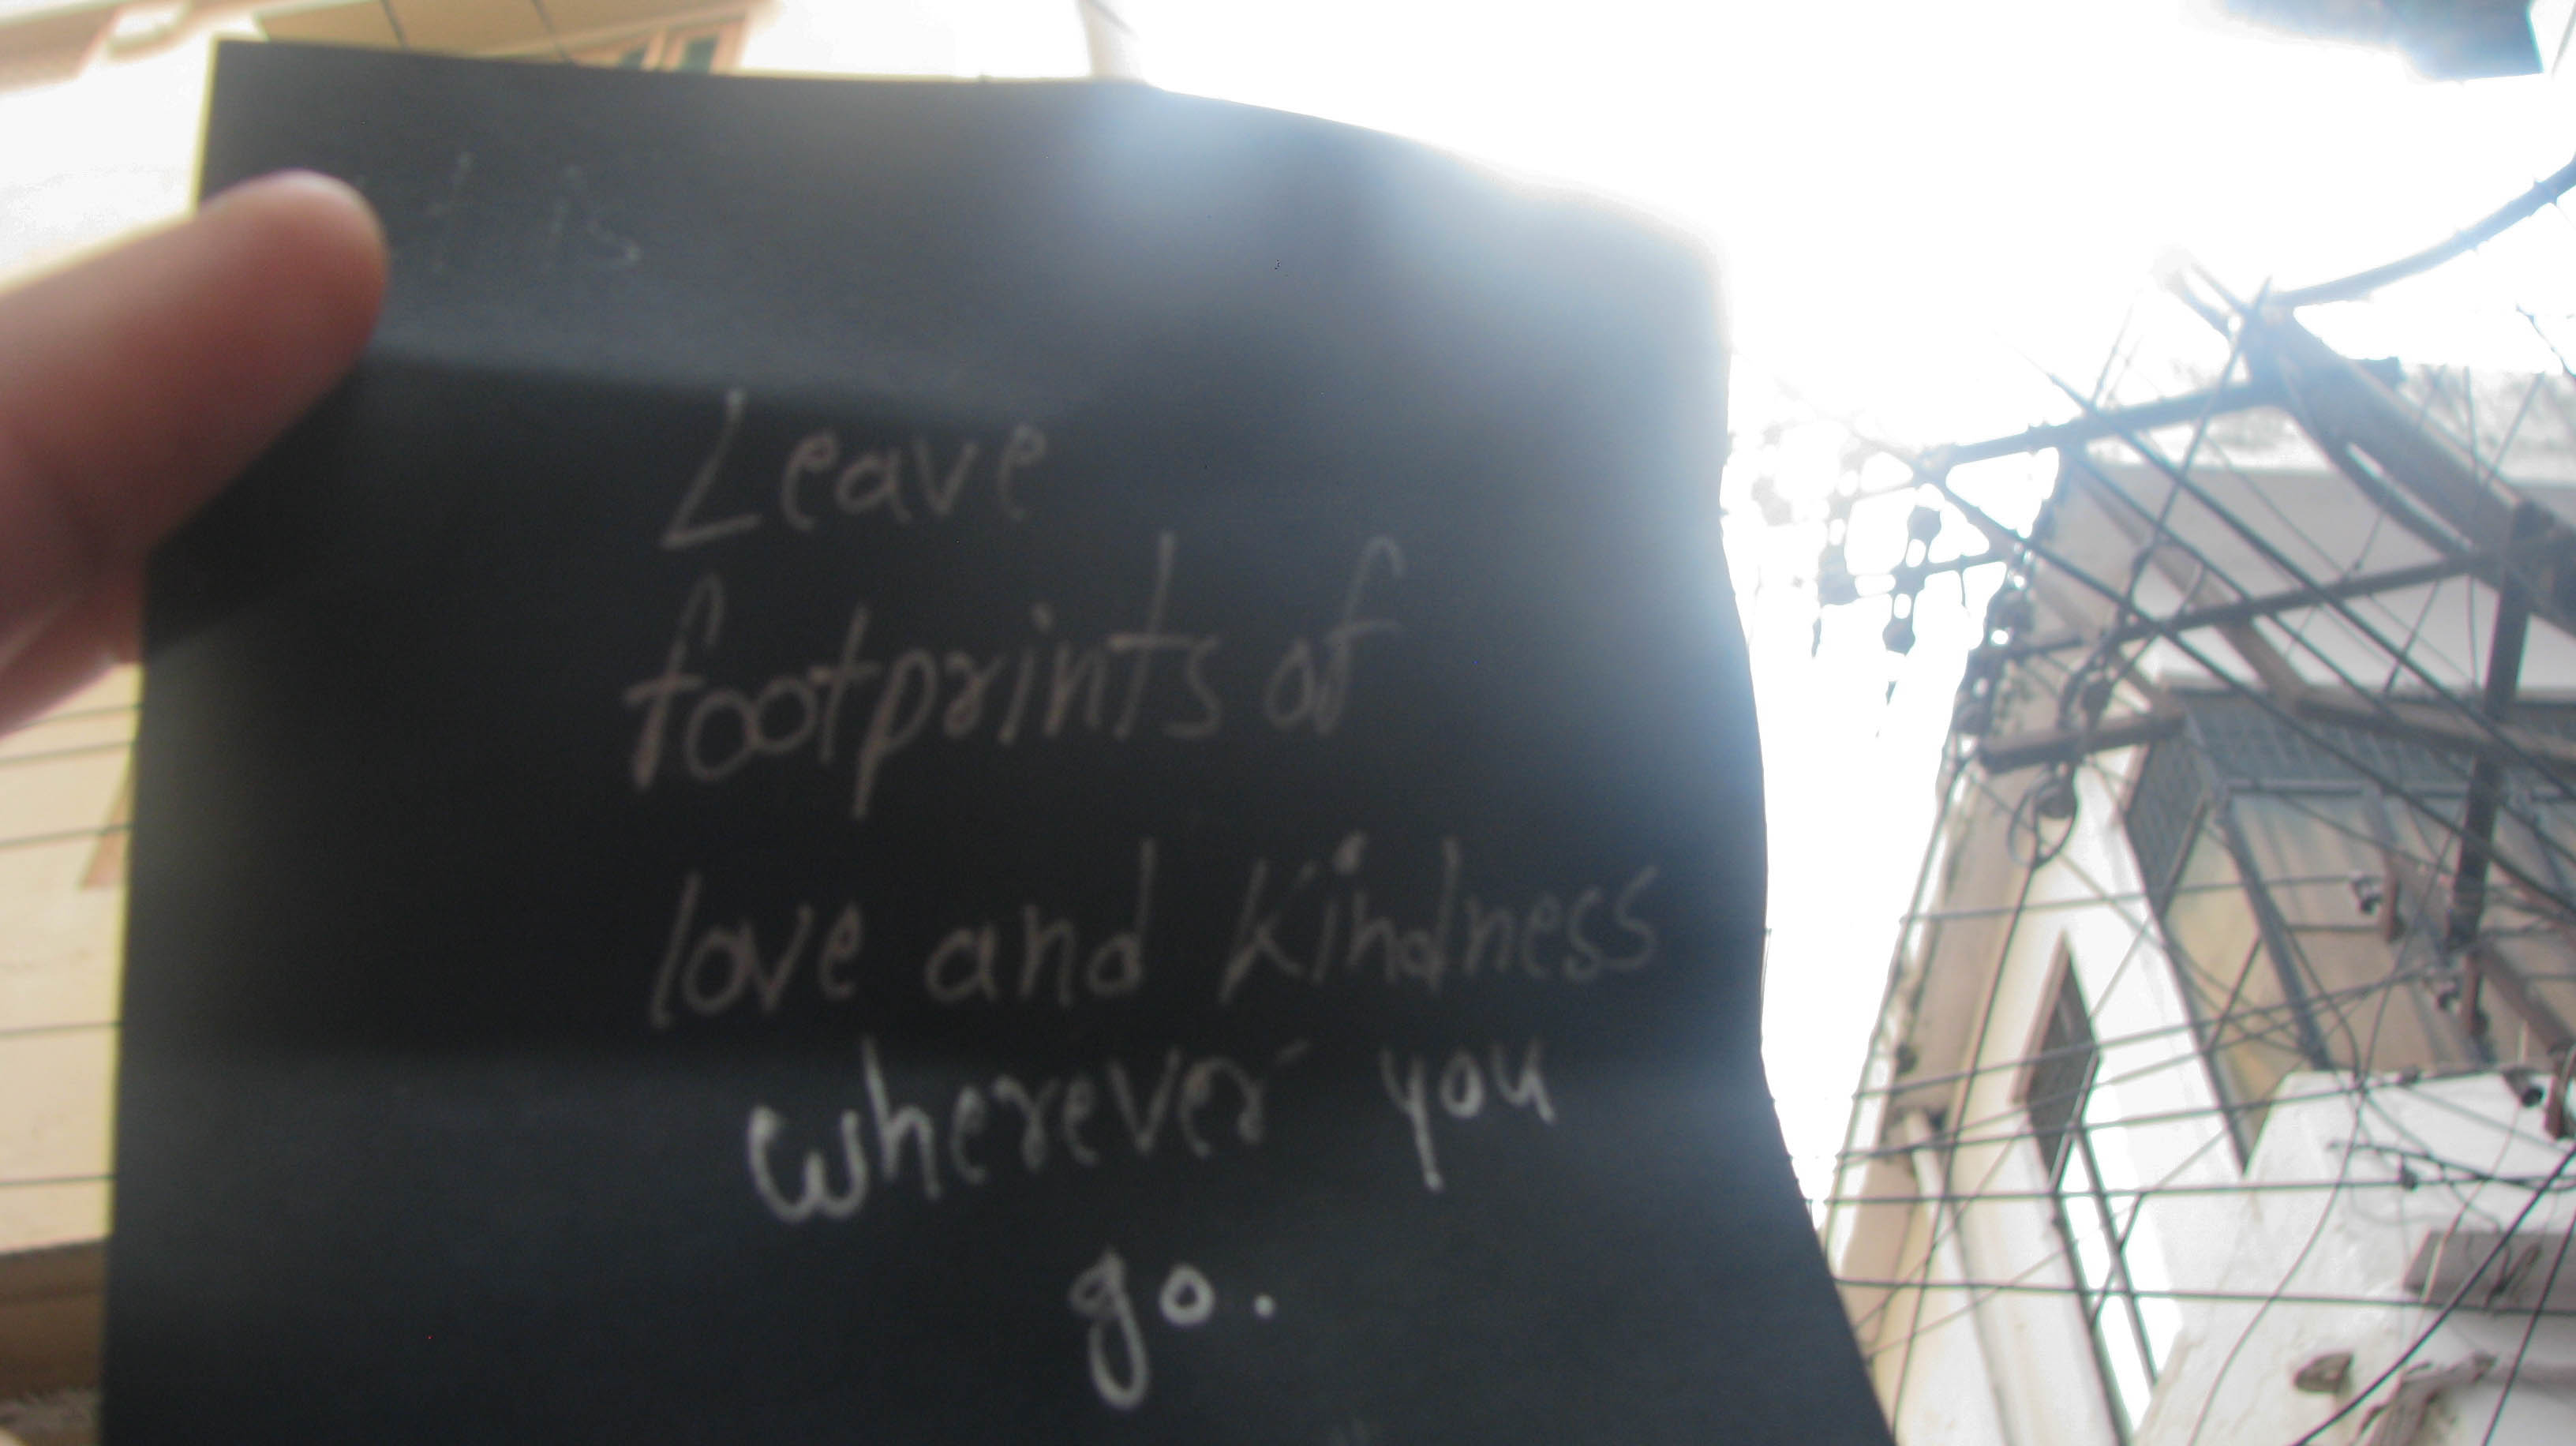 Leave
footprints of
love and kindness
wherever you
go.